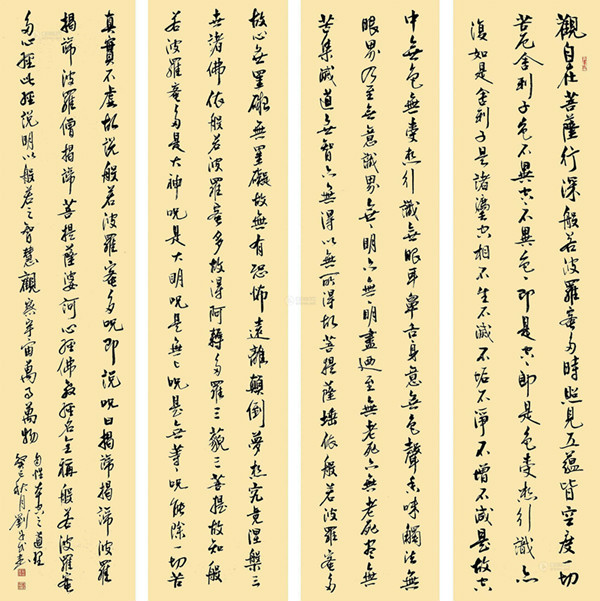 觀自在菩薩行深般若波羅蜜多時照見五蘊皆空度一切
苦厄舍利子色不異空空不異色色即是空空即是色受想行識亦
復如是舍利子是諸灋空相不生不滅不垢不淨不增不減是故空
中無色無受想行識無眼耳鼻舌身意無色聲香味觸法無
眼界乃至無意識界無無明亦無無明盡迺至無老死亦無老死盡無
苦集滅道無智亦無得以無所得故菩提薩埵依般若波羅蜜多
故心無罣礙無罣礙故無有恐怖遠離顛倒夢想究竟涅槃三
世諸佛依般若波羅蜜多故得阿耨多羅三藐三菩提故知般
若波羅蜜多是大神呪是大明呪是無上呪是無等等呪能除一切苦
真實不虛故說般若波羅蜜多呪即說呪曰揭諦揭諦波羅
揭諦波羅僧揭諦菩提薩婆訶心經佛教經名全稱般若波羅蜜
多心經此經說明以般若之智慧觀察宇宙萬事萬物
自性本空之道理
癸巳秋月劉子